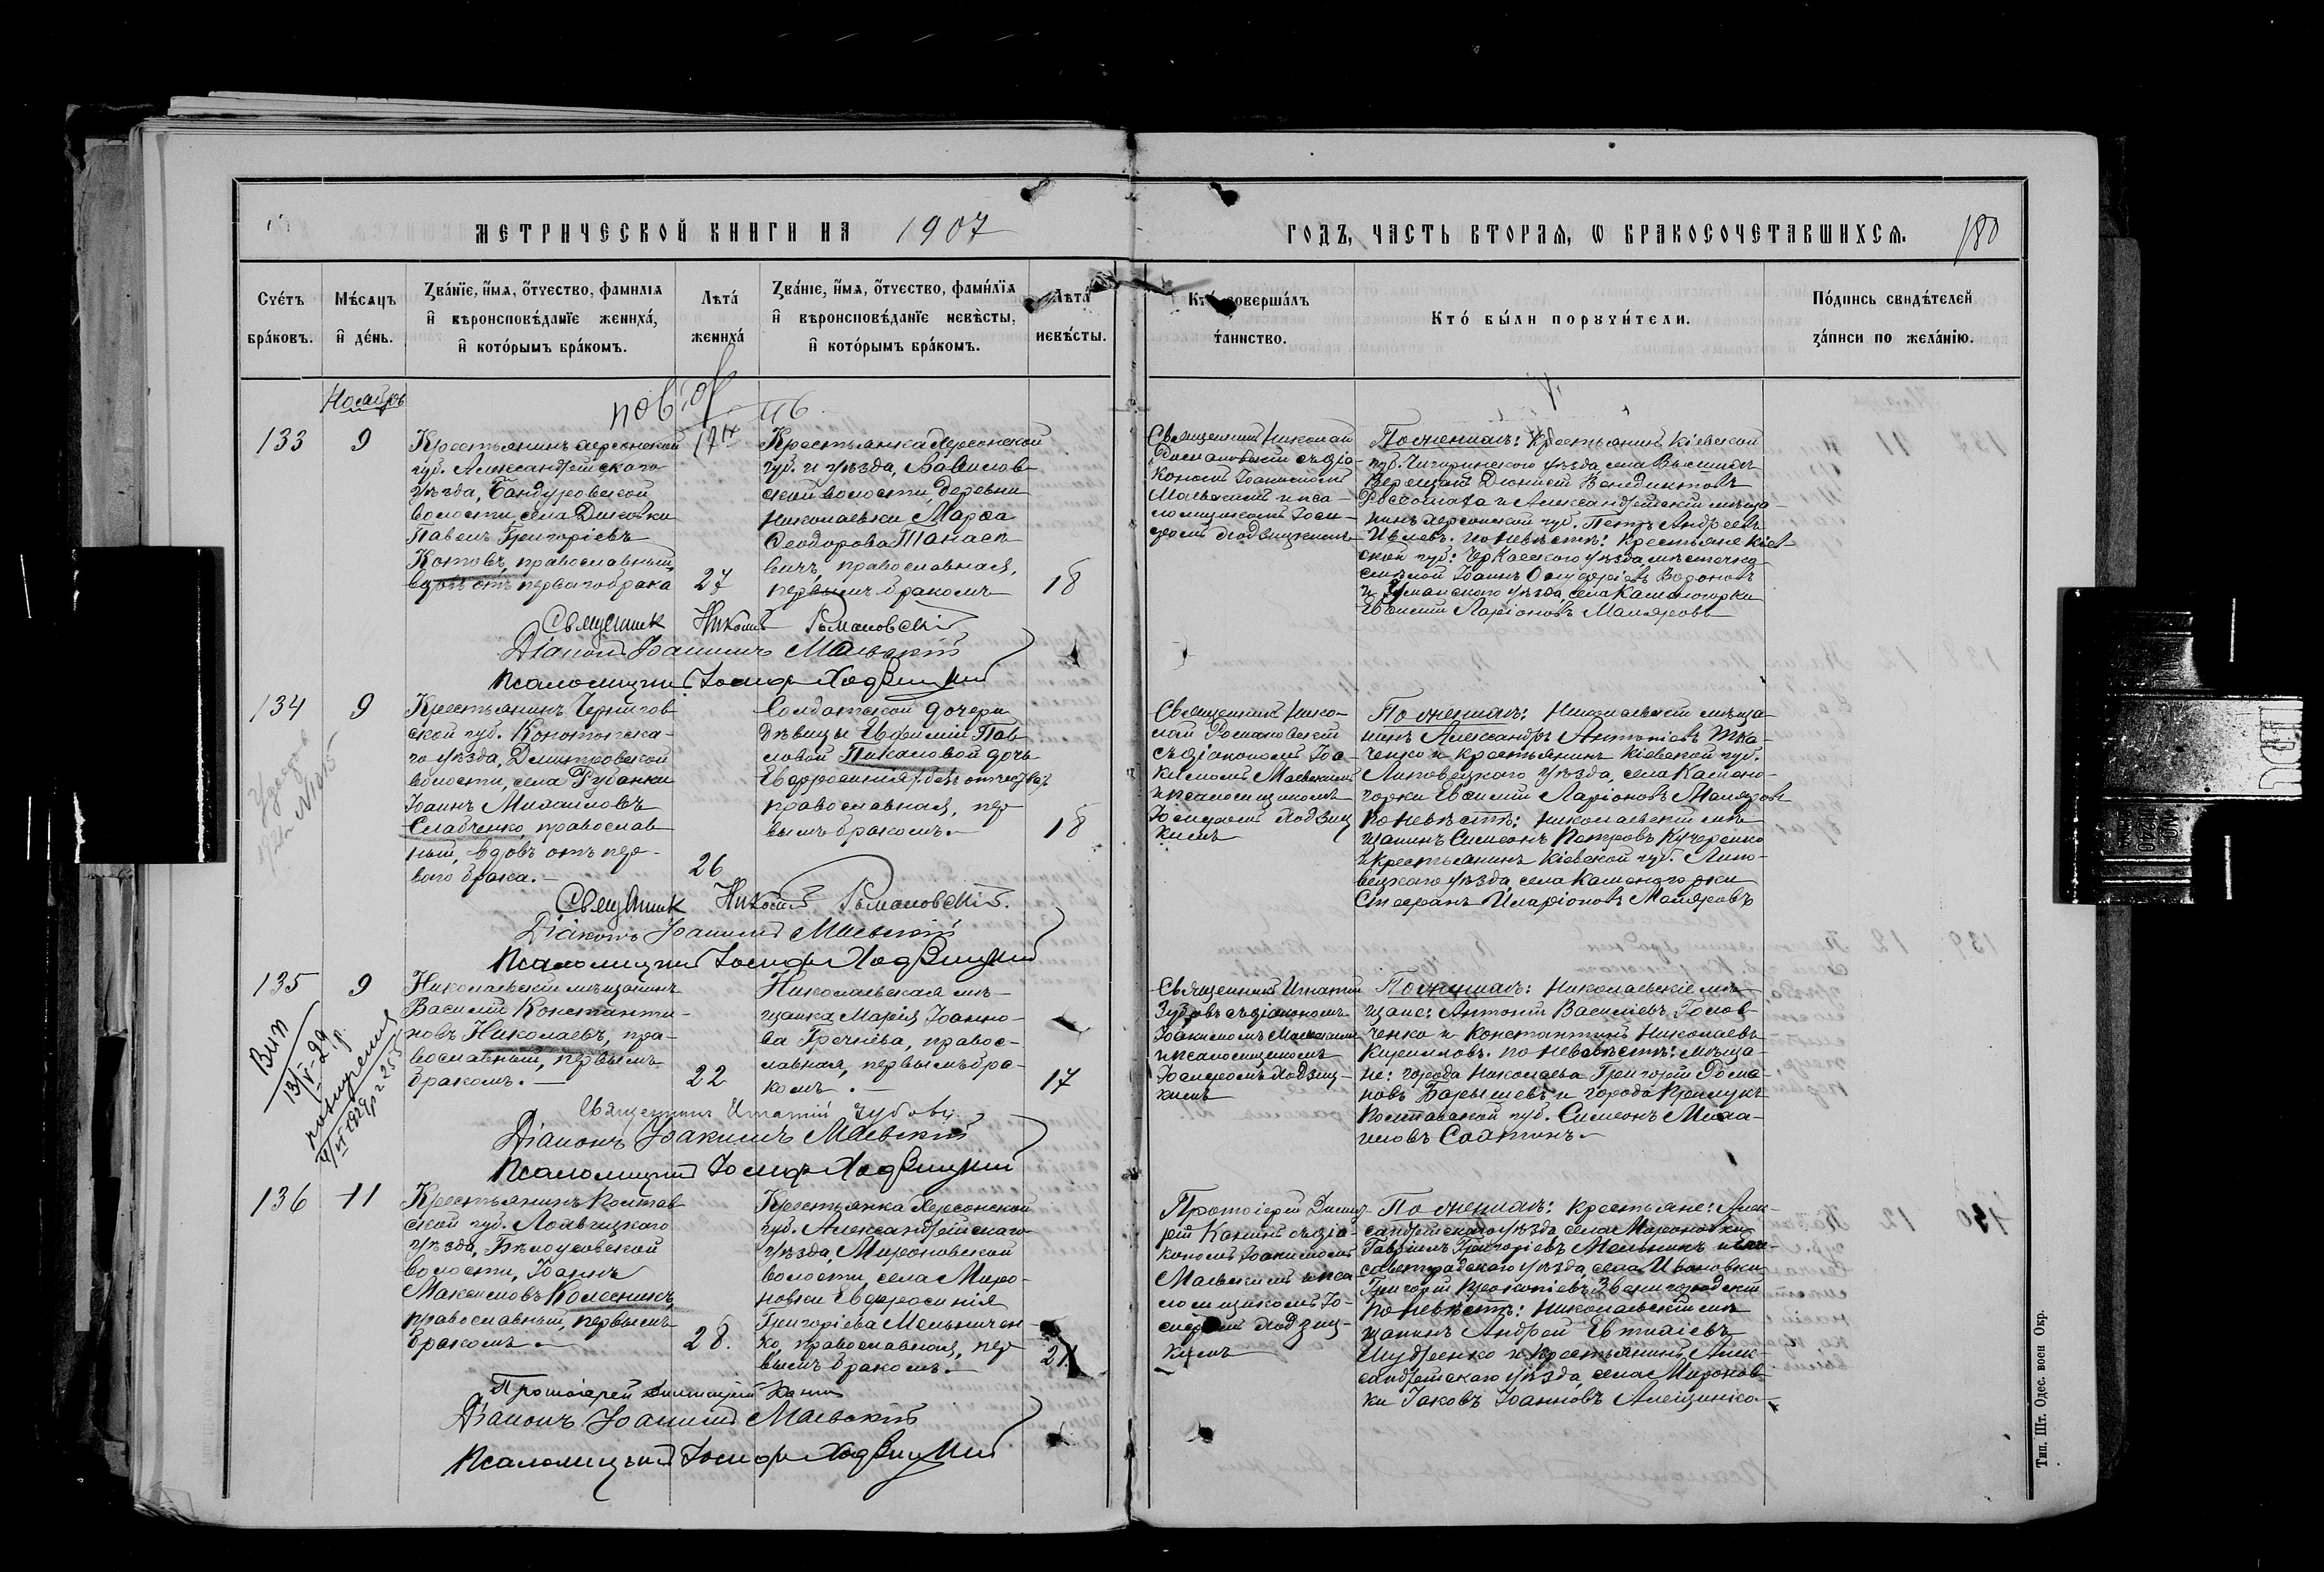 МЕТРИЧЕСКОЙ КНИГИ НА 1907
ГОДЪ, ЧАСТЬ ВТОРАЯ, Ѡ БРАКОСОЧЕТАВШИХСЯ. 180
Счетъ браковъ.
Мѣсяцъ и день.
Званіе, имя, отчество, фамилія
и вѣроисповѣданіе жениха,
и которымъ бракомъ.
Лѣта
жениха
Званіе, имя, отчество, фамилія
и вѣроисповѣданіе невѣсты,
и которымъ бракомъ.
Лѣта
невѣсты.
Кто совершалъ
таинство.
Кто были поручители.
Подпись свидѣтелей
записи по желанію.
Ноябрь
133
9
Крестьянинъ Херсонской
губ. Александрійскаго
уѣзда, Бандуровской
волости, села
Павелъ Григоріевъ
Котовъ, православный,
вдовъ отъ перваго брака
27
Крестьянка Херсонской
губ. и уѣзда,
ской волости, деревни
Николаевки Марѳа
Ѳеодорова Танасе
вичъ, православная,
первымъ бракомъ
18
Священникъ Николай
Романовскій съ діа-
кономъ Іоакимомъ
Маевскимъ и пса-
ломщикомъ Іоси-
фомъ Ходзицкимъ
По женихѣ: Крестьянинъ Кіевской
губ. Чигиринскаго уѣзда, села
Діонисій Венедиктовъ
и Александрійскій мѣща-
нинъ Херсонской губ. Петръ Андреевъ
Ивлевъ. по невѣстѣ: крестьяне Кіев-
ской губ: Черкасскаго уѣзда мѣстечка
Іоаннъ Онуфріевъ Вороновъ
и Уманскаго уѣзда, села Каменогорки
Евѳимій Ларіоновъ Маляровъ
Священникъ Николай Романовскій
Діаконъ Іоакимъ Маевскій
Псаломщикъ Іосифъ Ходзицкій
134
9
Крестьянинъ Чернигов
ской губ. Конотопска-
го уѣзда, Дмитровской
волости, села Рубанки
Іоаннъ Михаиловъ
Слабченко, православ
ный, вдовъ отъ пер-
ваго брака.
26
Солдатской дочери
дѣвицы Евѳиміи Пав
ловой Пикаловой дочь
Евфросинія (безъ отчества)
православная, пер
вымъ бракомъ.
18
Священникъ Нико-
лай Романовскій
съ діакономъ Іоа-
кимомъ Маевскимъ
и псаломщикомъ
Іосифомъ Ходзиц
кимъ
По женихѣ: Николаевскій мѣща-
нинъ Александръ Антоніевъ Тка-
ченко и крестьянинъ Кіевской губ.
Липовецкаго уѣзда, села Камено-
горки Евѳимій Ларіоновъ Маляровъ
по невѣстѣ: Николаевскій мѣ
щанинъ Симеонъ Петровъ Кучеренко
и крестьянинъ Кіевской губ. Липо-
вецкаго уѣзда, села Каменогорки
Стефанъ Иларіоновъ Маляровъ
Священникъ Николай Романовскій.
Діаконъ Іоакимъ Маевскій
Псаломщикъ Іосифъ Ходзицкій
135
9
Николаевскій мѣщанинъ
Василій Константи-
новъ Николаевъ, пра-
вославный, первымъ
бракомъ.
22
Николаевская мѣ-
щанка Марія Іоанно-
ва Гречнева, правос-
лавная, первымъ бра-
комъ.
17
Священникъ Игнатій
Зубовъ съ діакономъ
Іоакимомъ Маевскимъ
и псаломщикомъ
Іосифомъ Ходзиц-
кимъ
По женихѣ: Николаевскіе мѣ-
щане: Антоній Василіевъ Голов-
ченко и Константинъ Николаевъ
Кирилловъ. по невѣстѣ: мѣща-
не: города Николаева Григорій Рома-
новъ Барышевъ и города
Полтавской губ. Симеонъ Миха-
иловъ
Священникъ Игнатій Зубовъ
Діаконъ Іоакимъ Маевскій
Псаломщикъ Іосифъ Ходзицкій
136
11
Крестьянинъ Полтав
ской губ. Лохвицкаго
уѣзда, Бѣлоусовской
волости, Іоаннъ
Максимовъ Колесникъ,
православный, первымъ
бракомъ.
28.
Крестьянка Херсонской
губ. Александрійскаго
уѣзда, Мироновской
волости, села Миро-
новки Евфросинія
Григоріева Мельничен
ко, православная, пер
вымъ бракомъ.
21
Протоіерей Дмит
рій Канинъ съ діа-
кономъ Іоакимомъ
Маевскимъ и пса
ломщикомъ Іо-
сифомъ Ходзиц-
кимъ
По женихѣ: крестьяне: Алек-
сандрійскаго уѣзда села Мироновки
Гавріилъ Григоріевъ Мельникъ и Ели-
саветградскаго уѣзда, села Ивановки
Григорій Прокопіевъ Звенигородскій
по невѣстѣ: Николаевскій мѣ
щанинъ Андрей Евтихіевъ
Шудренко и крестьянинъ Алек-
сандрійскаго уѣзда, села Миронов
ки Іаковъ Іоанновъ Алещенко
Протоіерей Димитрій Канинъ
Діаконъ Іоакимъ Маевскій
Псаломщикъ Іосифъ Ходзицкій
Тип. Шт. Одес. воен Окр.